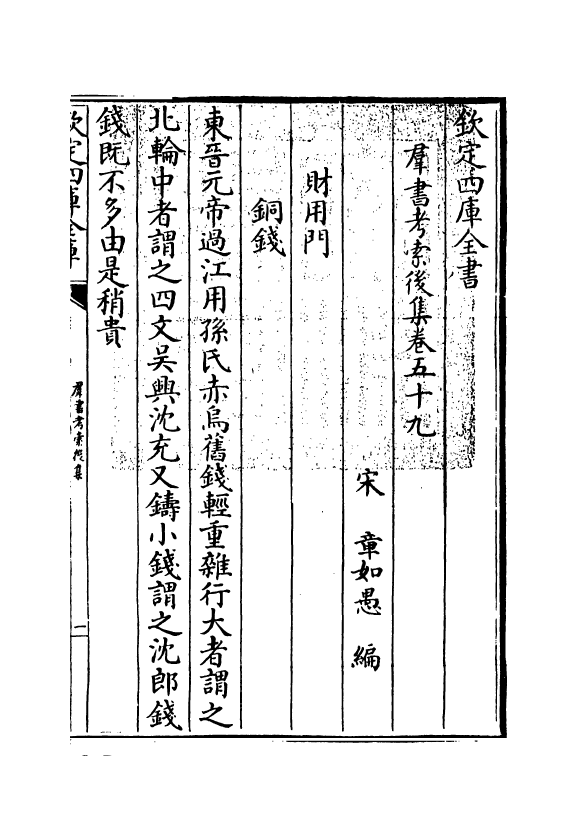 欽定四庫全書
羣書考索後集卷五十九
宋　章如愚　編
財用門
銅錢
東晉元帝過江用孫氏赤烏舊錢輕重雜行大者謂之
北輪中者謂之四文吳興沈充又鑄小錢謂之沈郎錢
錢既不多由是稍貴
欽定四庫全書
羣書考索後集
一